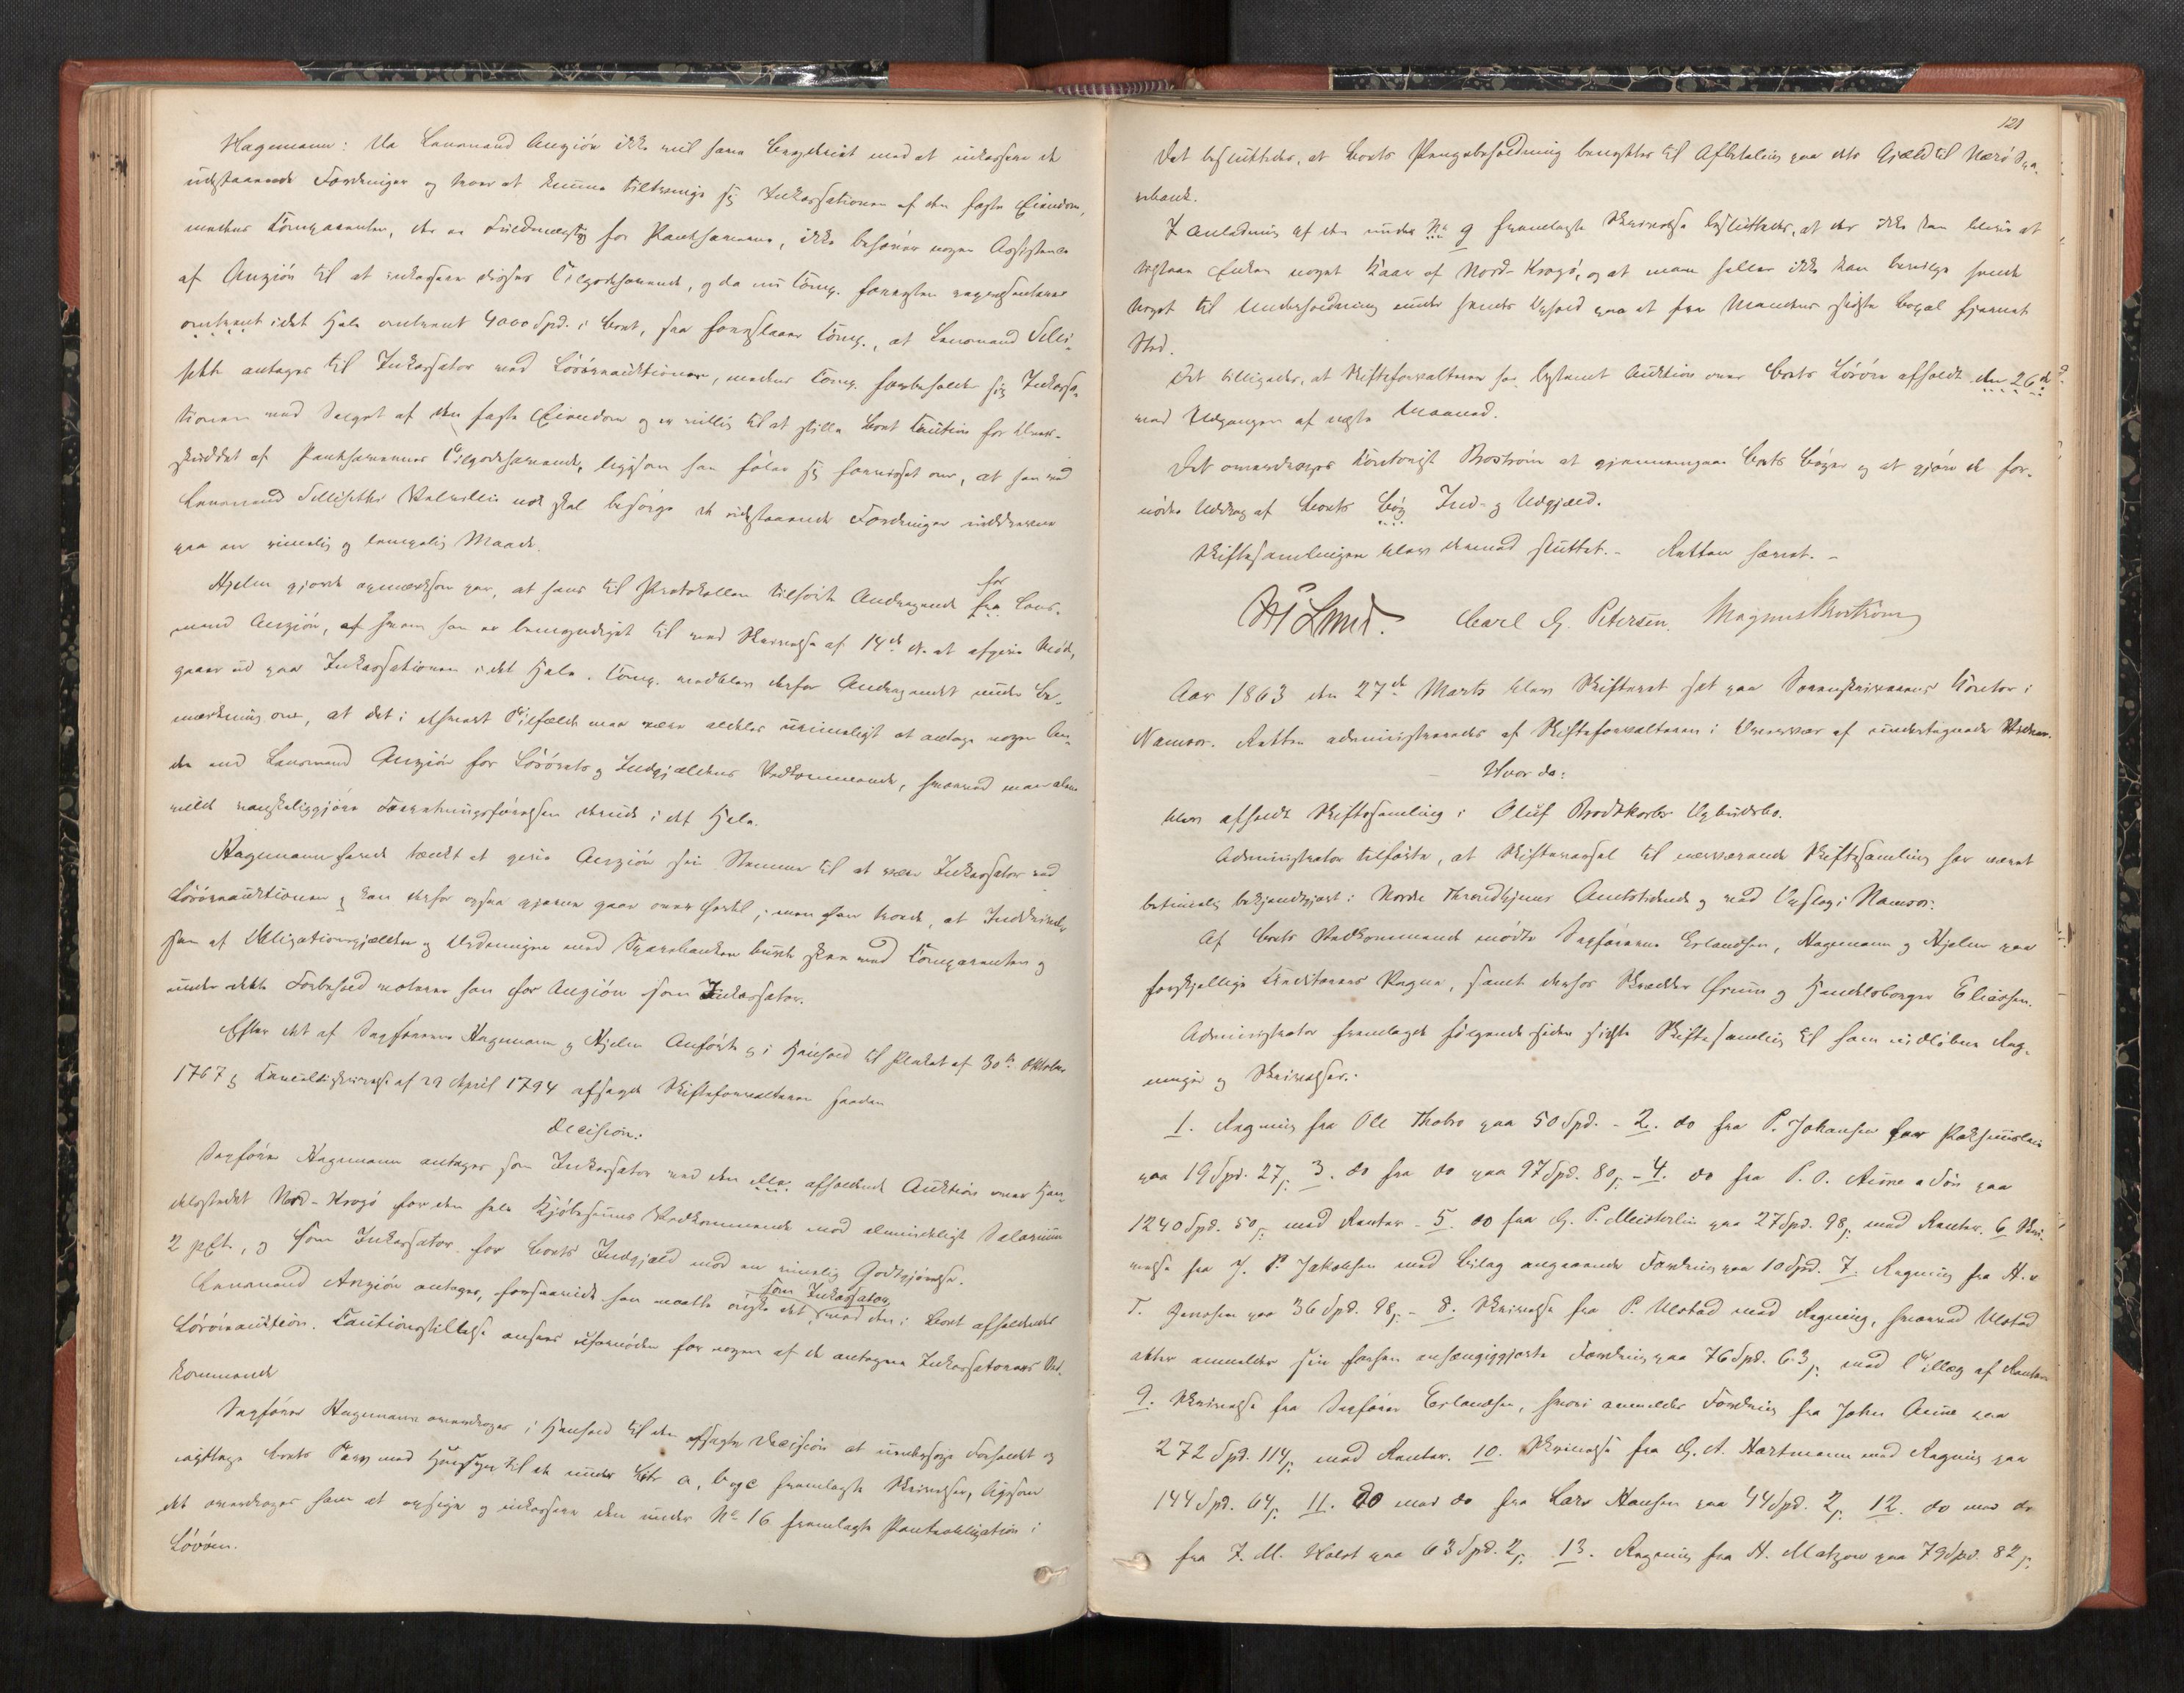 Hagemann: Da Lensmand Anzjön ikke vil have Besværet med at inkassere de
udestaaende Fordringer og kun at kunne tiltvinge sig Inkassationen af den faste Eiendom,
medens Comparenten, der er Fuldmægtig for Panthaverne, ikke behøver nogen Assistance
af Anzjön til at inkassere disses Tilgodehavende, og da nu Comp. foruden repræsenterer
omtrent i det Hele omtrent 4000 Spd. i Boet, saa foreslaaer Comp., at Lensmand Selli-
seth antages til Inkassator ved Løsøreauktionen, medens Comp. forbeholder sig Inkassa-
tionen ved Salget af den faste Eiendom og er villig til at stille Boet Caution for Over-
skuddet af Panthavernes Tilgodehavende, ligesom han føler sig forvisset om, at han ved
Lensmand Selliseths skal besørge de udestaaende Fordringer inddrevne
paa en rimelig og lempelig Maade.
Hjelm gjorde opmærksom paa, at hans til Protokollen tilførte Andragende for Lens-
mand Anzjön, af hvem han er bemyndiget til ved Skrivelse af 14de ds. at afgive Møde,
gaaer ud paa Inkassationen i det Hele. Comp. vedblev derfor Andragendet under Be-
mærkning om, at det i ethvert Tilfælde maa være aldeles urimeligt at antage nogen An-
den end Lensmand Anzjön for Løsørets og Indgjældens Vedkommende, hvorved man alene
vilde vanskeliggjøre Forretningsførelsen dermed i det Hele.
Hagemann havde tænkt at give Anzjön sin Stemme til at være Inkassator ved
Løsøreauktionen og kan derfor ogsaa gjerne gaae over hertil; men han troede, at Inddrivel-
sen af Obligationsgjælden og Ordningen med Sparebanken burde skee ved Comparenten og
under dette Forbehold voterer han for Anzjön som Inkassator.
Efter det af Sagførerne Hagemann og Hjelm Anførte og i Henhold til Plakat af 30te Oktober
1767 og Cancelliskrivelse af 29 April 1794 afsagde Skifteforvalteren saadan
Decision:
Sagfører Hagemann antages som Inkassator ved den afholdende Auktion over Han-
delsstedet Nord-Krogö for den hele Kjøbesums Vedkommende mod almindeligt Salarium
2 pCt., og som Inkassator for Boets Indgjæld mod en rimelig Godtgjørelse.
Lensmand Anzjön antages, forsaavidt han maatte ønske det som Inkassator, ved den i Boet afholdende
Løsøreauktion. Cautionsstillelse ansees ufornøden for nogen af de antagne Inkassatorers Ved-
kommende
Sagfører Hagemann overdrages i Henhold til den afsagte Decision at undersøge Forholdet og
iagttage Boets Tarv med Hensyn til de under Litr a, b og c fremlagte Skrivelser, ligesom
det overdrages ham at opsige og inkassere den under No 16 fremlagte Pantobligation i
Løvöen.
121
Det besluttedes, at Boets Pengebeholdning benyttes til Afbetaling paa dets Gjæld til Nærö Spa-
rebank.
I Anledning af den under No 9 fremlagte Skrivelse besluttedes, at der ikke kan blive at
tilstaae Enken noget Kaar af Nord-Krogö, og at man heller ikke kan bevilge hende
Noget til Underholdning under hendes Ophold paa et fra Mandens sidste Bopæl fjernet
Sted.
Det tilligedes, at Skifteforvalteren har bestemt Auktion over Boets Løsøre afholdt den 26de
ved Udgangen af næste Maaned.
Det overdroges Kontorist Broström at gjennemgaae Boets Bøger og at gjøre de for-
nødne Uddrag af Boets Bøg Ind- og Udgjæld.
Skiftesamlingen blev dermed sluttet. - Retten hævet. -
Lund. Carl G. Petersen. Magnus Broström
Aar 1863 den 27de Marts blev Skifteret sat paa Sorenskriverens Contor i
Namsos. Retten administreredes af Skifteforvalteren i Overvær af undertegnede Vidner.
Hvor da:
blev afholdt Skiftesamling i Oluf Brodtkorbs Opbudsbo.
Administrator tilførte, at Skiftevarsel til nærværende Skiftesamling har været
betimelig bekjendtgjort i Nordre Throndhjems Amtstidende og ved Opslag i Namsos.
Af Boets Vedkommende mødte Sagførerne Erlandsen, Hagemann og Hjelm paa
forskjellige Creditorers Vegne, samt desuden Skrædder Ørum og Handelsborger Eliassen.
Administrator fremlagde følgende siden sidste Skiftesamling til ham indløbne Reg-
ninger og Skrivelser:
1. Regning fra Ole Thobro paa 50 Spd. - 2. do fra P. Johansen
paa 19 Spd. 27 s. 3. do fra do paa 97 Spd. 80 s. - 4. do fra P. O. Aune & Søn paa
1240 Spd. 50 s. med Renter - 5. do fra G. P. Meisterlin paa 27 Spd. 98 s. med Renter. 6 Skri-
velse fra J. P. Jakobsen med Bilag angaaende Fordring paa 10 Spd. 7. Regning fra H. &
T. Jensen paa 36 Spd. 98 s. - 8. Skrivelse fra P. Ulstad med Regning, hvorved Ulstad
atter anmelder sin forhen anhængiggjorte Fordring paa 76 Spd. 63 s. med Tillæg af Renter
9. Skrivelse fra Sagfører Erlandsen, hvori anmeldes Fordring fra John Aune paa
272 Spd. 114 s. med Renter. 10. Skrivelse fra G. A. Hartmann med Regning paa
144 Spd. 64 s. 11. do med do fra Lars Hansen paa 44 Spd. 2 s. 12. do med do
fra J. M. Holst paa 63 Spd. 2 s. 13. Regning fra H. Matzow paa 79 Spd. 82 s.